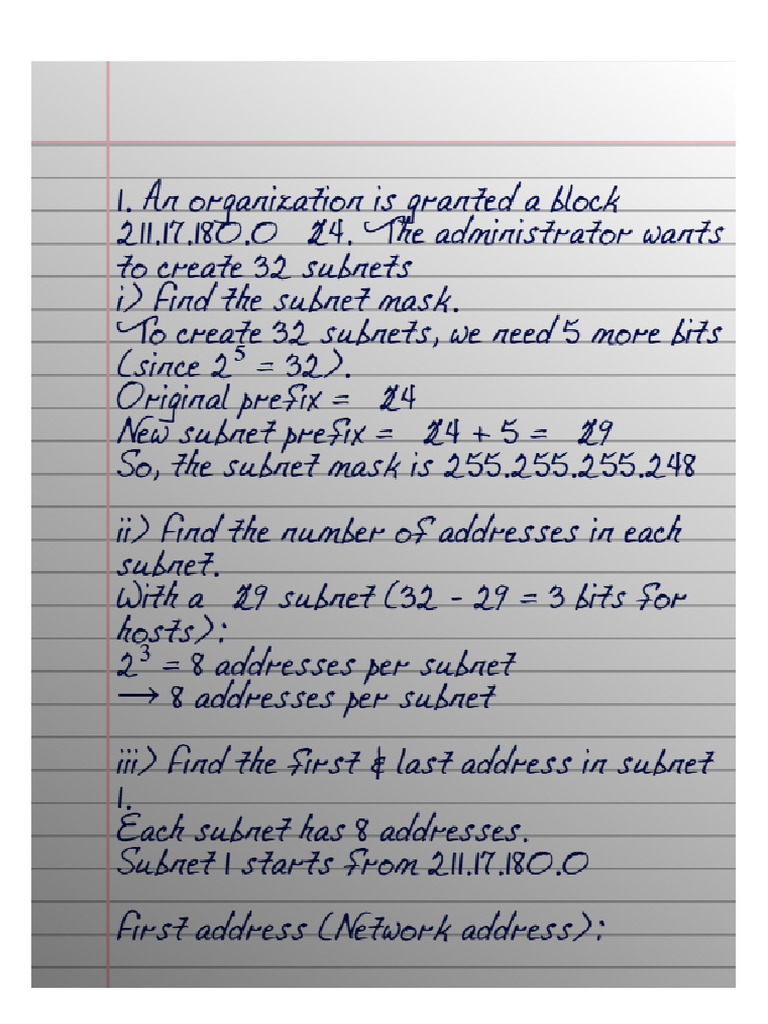 1. An organization is granted a block
211.17.180.0 /24. The administrator wants
to create 32 subnets
i) Find the subnet mask.
To create 32 subnets, we need 5 more bits
(since 2⁵ = 32).
Original prefix = /24
New subnet prefix = /24 + 5 = /29
So, the subnet mask is 255.255.255.248
ii) Find the number of addresses in each
subnet.
With a /29 subnet (32 - 29 = 3 bits for
hosts):
2³ = 8 addresses per subnet
→ 8 addresses per subnet
iii) Find the first & last address in subnet
1.
Each subnet has 8 addresses.
Subnet 1 starts from 211.17.180.0
First address (Network address):